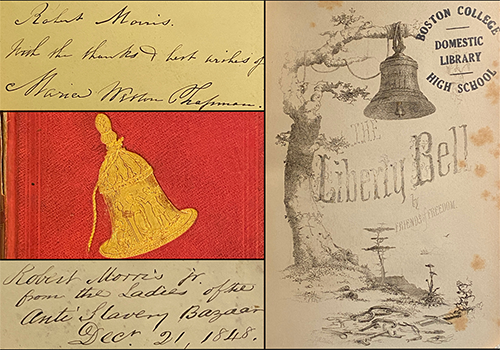 Robert Morris.
With the thanks & best wishes of
Maria Weston Chapman.
Robert Morris jr.
from the Ladies of the
Anti Slavery Bazaar
Dect. 21, 1848.
BOSTON COLLEGE
DOMESTIC
LIBRARY
HIGH SCHOOL
THE
Liberty Bell
by
FRIENDS OF FREEDOM.